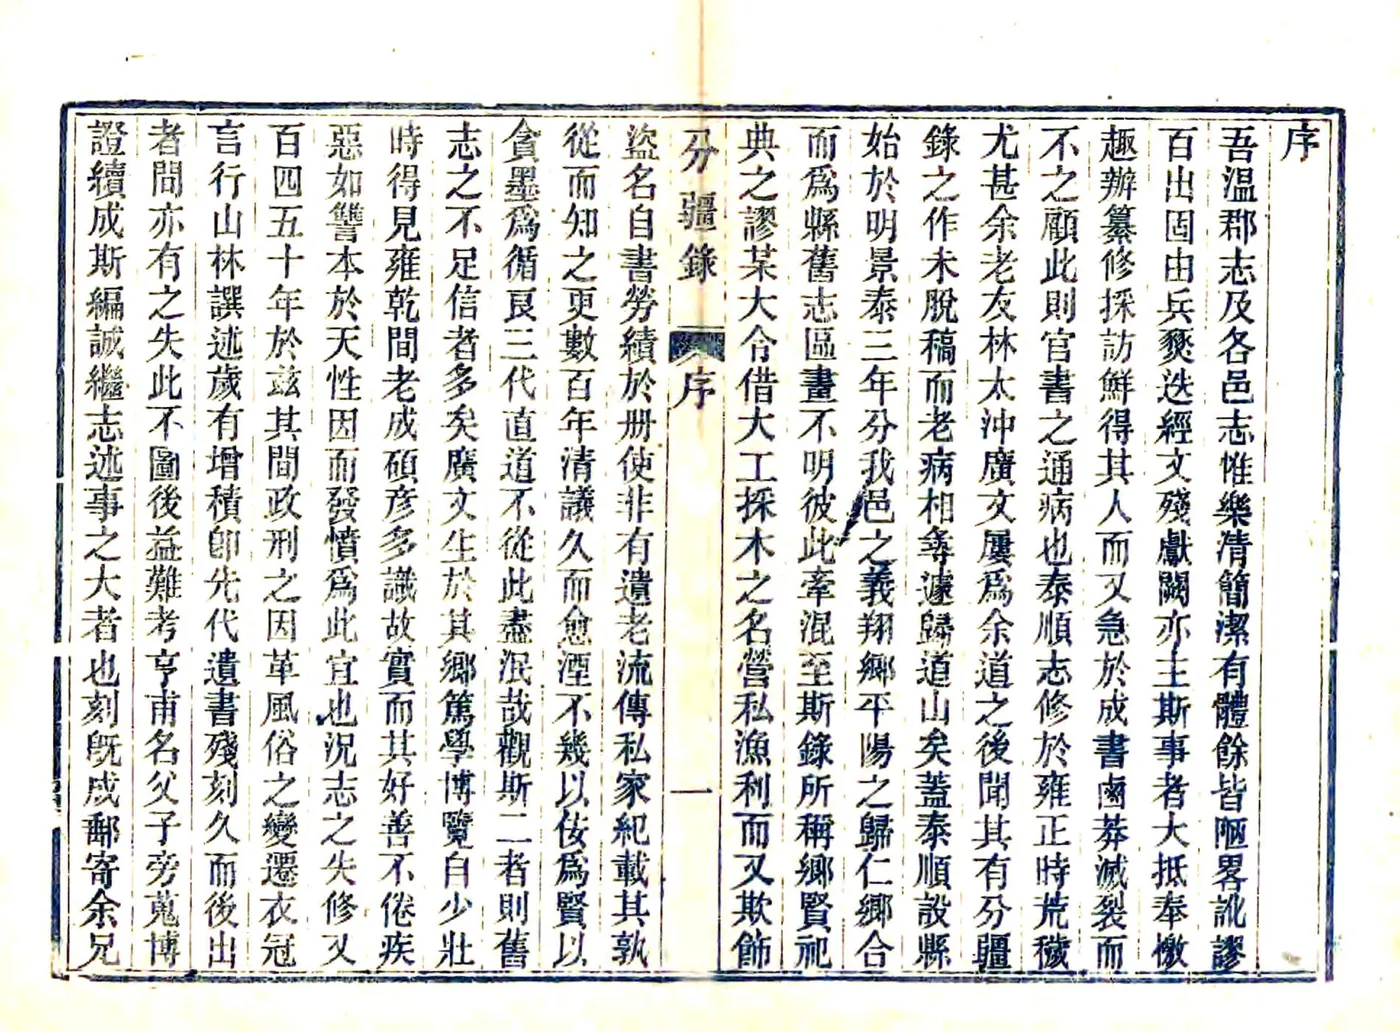 序
吾溫郡志及各邑志惟樂清簡潔有體餘皆陋畧訛謬
百出固由兵燹迭經文殘獻闕亦主斯事者大抵奉檄
趣辦纂修採訪鮮得其人而又急於成書鹵莽滅裂而
不之顧此則官書之通病也泰順志修於雍正時荒穢
尤甚余老友林太沖廣文屢爲余道之後聞其有分疆
錄之作未脫稿而老病相尋遽歸道山矣蓋泰順設縣
始於明景泰三年分我邑之義翔鄉平陽之歸仁鄉合
而爲縣舊志區畫不明彼此牽混至斯錄所稱鄉賢祀
典之謬某大令借大工採木之名營私漁利而又欺飾
分疆錄 序 一
盜名自書勞績於册使非有遺老流傳私家紀載其孰
從而知之更數百年清議久而愈湮不幾以佞爲賢以
貪墨爲循良三代直道不從此盡泯哉觀斯二者則舊
志之不足信者多矣廣文生於其鄉篤學博覽自少壯
時得見雍乾間老成碩彥多識故實而其好善不倦疾
惡如讐本於天性因而發憤爲此宜也況志之失修又
百四五十年於茲其間政刑之因革風俗之變遷衣冠
言行山林譔述歲有增積卽先代遺書殘刻久而後出
者間亦有之失此不圖後益難考亨甫名父子旁蒐博
證續成斯編誠繼志述事之大者也刻旣成郵寄余兄